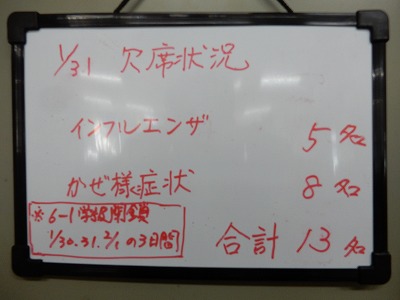 1/31 欠席状況
インフルエンザ 5名
かぜ様症状 8名
※6-1学級閉鎖
1/30.31.2/1の3日間
合計 13名